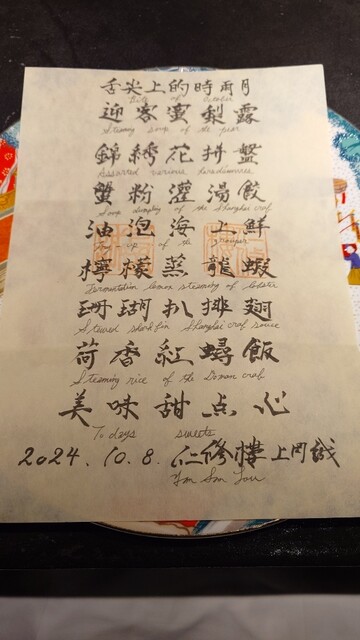 舌尖上的時雨月
Bite of October
迎客蜜梨露
Steamy soup of the pear
錦綉花拼盤
Assorted various
蟹粉灌湯餃
Soup dumpling of the Shanghai crab
油泡海上鮮
of the grouper
檸檬蒸龍蝦
Fermentation lemon steaming of lobster
珊瑚扒排翅
Stewed shark fin Shanghai crab sauce
荷香紅蟳飯
Steaming rice of the Donan crab
美味甜点心
To days sweets
2024.10.8. 仁修樓上岡誠
Yan Sau Lou